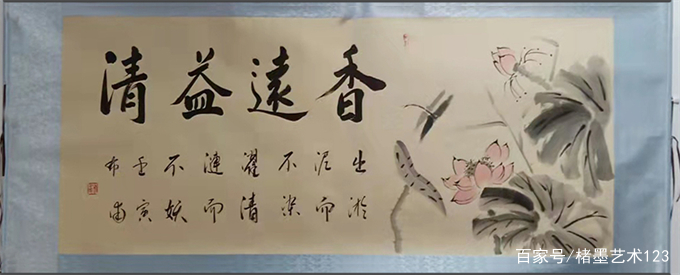 香遠益清
出淤
泥而
不染
濯清
漣而
不妖
壬寅
布甫
百家号/楮墨艺术123